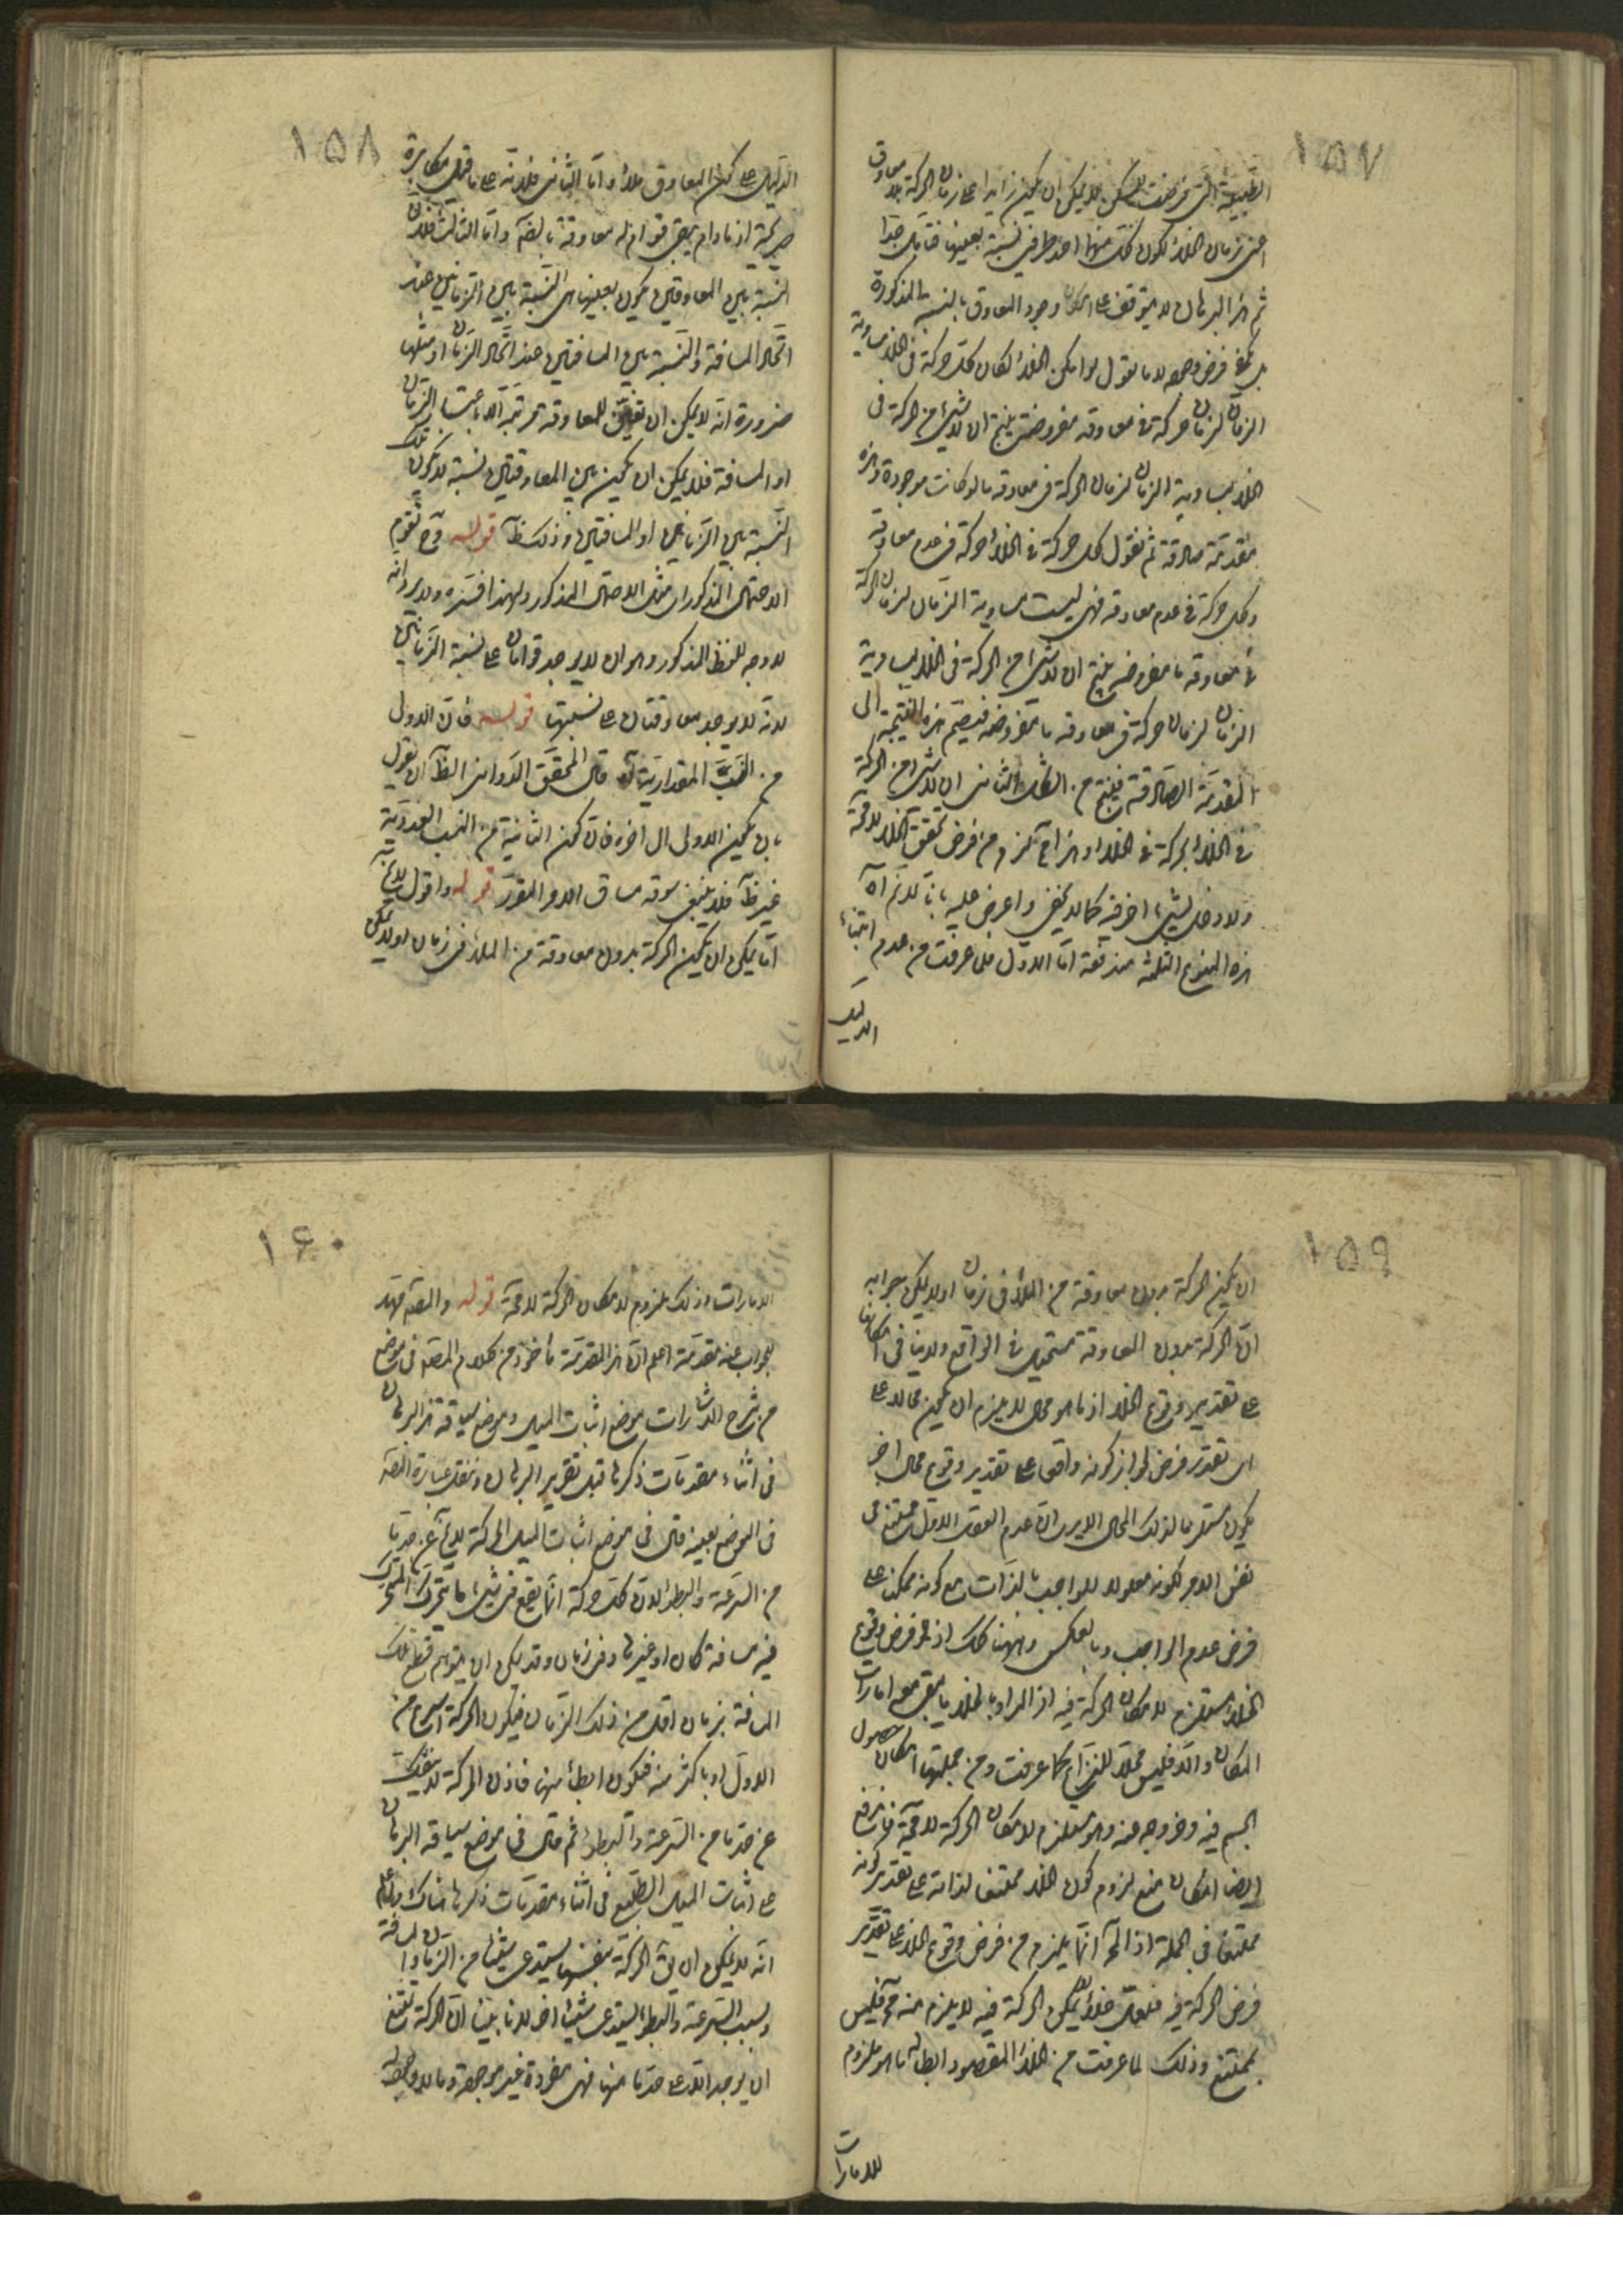 ١٥٧
الطبيعة التى فرضت لا يمكن ان يكون زايدا على زمان الحركة بلا معاوق
اعنى زمان الخلأ لكون كل منهما احد طرفى نسبة بعينها فتأمل جدا
ثم هذا البرهان لا يتوقف على امكان وجود المعاوق بالنسبة المذكورة
بل يكفى فرض وجوده لانا نقول لو امكن الخلأ لكان كل حركة فى الخلأ مساوية
الزمان لزمان حركة فى معاوقة مفروضة ينتج ان لا شئ من الحركة فى
الخلأ بمساوية الزمان لزمان الحركة فى معاوقة ما لو كانت موجودة وهذه
مقدمة صادقة ثم نقول كل حركة فى الخلأ حركة فى عدم معاوقة
وكل حركة فى عدم معاوقة فهى ليست مساوية الزمان لزمان الحركة
فى معاوقة ما مفروضة ينتج ان لا شئ من الحركة فى الخلأ بمساوية
الزمان لزمان حركة فى معاوقة ما مفروضة فيضم هذه النتيجة الى
المقدمة الصادقة فينتج من الشكل الثانى ان لا شئ من الحركة
فى الخلأ بحركة فى الخلأ وهذا مح لزم من فرض تحقق الخلأ لا محة
ولا دخل لشئ اخر فيه كما لا يخفى واعرض عليه بانا لا نم اه
هذه المنوع الثلثة مندفعة اما الاول فلما عرفت من عدم ابتناء
الدليل
١٥٨
الدليل على كون المعاوق ملأ واما الثانى فلانه على ما قيل مكابرة
صريحة اذ ما دام يبقى قوام له معاوقة بالضرورة واما الثالث فلان
النسبة بين المعاوقين يكون بعينها هى النسبة بين الزمانين عند
اتحاد المسافة والنسبة بين المسافتين عند اتحاد الزمان او مثلهما
ضرورة انه لا يمكن ان تعين للمعاوقة مرتبة الا باعتبار الزمان
او المسافة فلا يمكن ان يكون بين المعاوقتين نسبة لا تكون تلك
النسبة بين الزمانين او المسافتين وذلك ظ قوله وح تقوم
الاحتمال المذكور اى مثل الاحتمال المذكور ولهذا فسره ولا يرد انه
لا وجه للفظ المذكور وهو ان لا يوجد قوامان على نسبة الزمانين
لانه لا يوجد معاوقتان على نسبتهما قوله فان الاولى
من النسب المقدارية اه قال المحقق الدوانى الظ ان يقول
بان يكون الاولى الى اخره فان كون الثانية من النسب العددية
غير ظ فلا ينبغى سوقه مساق الامر المقرر قوله واقول لا يخ
اما يمكن ان يكون الحركة بدون معاوقة من الملأ فى زمان او لا يمكن
١٥٩
ان يكون الحركة بدون معاوقة من الملأ فى زمان او لا يمكن جوابه
ان الحركة بدون المعاوقة مستحيل فى الواقع ولا ينافى امكانها
على تقدير وقوع الخلأ اذ ما هو محال لا يلزم ان يكون محالا على
اى تقدير فرض لجواز كونه واقعا على تقدير وقوع محال اخر
يكون مستلزما لذلك المحال الا يرى ان عدم العقل الاول ممتنع فى
نفس الامر لكونه معلولا للواجب بالذات مع كونه ممكنا على
فرض عدم الواجب وبالعكس وههنا كك اذ لو فرض وقوع
الخلأ مستلزم لامكان الحركة فيه اذ المراد بالخلأ ما يبقى معه امارات
المكان والا فليس محلا للنزاع كما عرفت ومن جملتها امكان حصول
الجسم فيه وخروجه عنه وهو مستلزم لامكان الحركة لا محة فاندفع
ايضا امكان منع لزوم كون الخلأ ممتنعا لذاته على تقدير كونه
ممتنعا فى الجملة اذ المح انما يلزم من فرض وقوع الخلأ على تقدير
فرض الحركة فيه فلعل خلأ لا يمكن الحركة فيه لا يلزم منه مح فليس
بممتنع وذلك لما عرفت من الخلأ المقصود ابطاله ما هو ملزوم
للامارات
١٦٠
الامارات وذلك ملزوم لامكان الحركة لا محة قوله والمصه مهد
للجواب عنه مقدمة اعلم ان هذا المقدمة مأخوذ من كلام المصه فى موضع
من شرح الاشارات موضع اثبات الميل وموضع سياقة هذا البرهان
فى اثناء مقدمات ذكرها قبل تقرير البرهان وننقل عبارة المصه
فى الموضع بعينه قال فى موضع اثبات الميل الحركة لا يخ عن حد ما
من السرعة والبطؤ لان كل حركة انما يقع فى شئ ما يتحرك المتحرك
فيه مسافة كان او غيرها وفى زمان وقد يمكن ان يتوهم قطع تلك
المسافة بزمان اقل من ذلك الزمان فيكون الحركة اسرع من
الاول او باكثر منه فيكون ابطأ منها فاذن الحركة لا ينفك
عن حد ما من السرعة والبطؤ ثم قال فى موضع سياقة البرهان
على اثبات الميل الطبيعى فى اثناء مقدمات ذكرها هناك واعلم
انه لا يمكن ان يق الحركة بنفسها يستدعى شيئا من الزمان او المسافة
وبسبب السرعة والبطؤ يستدعى شيئا اخر لانا بينا ان الحركة تمتنع
ان يوجد الا على حد ما منهما فهى مفردة غير موجودة وما لا وجود له